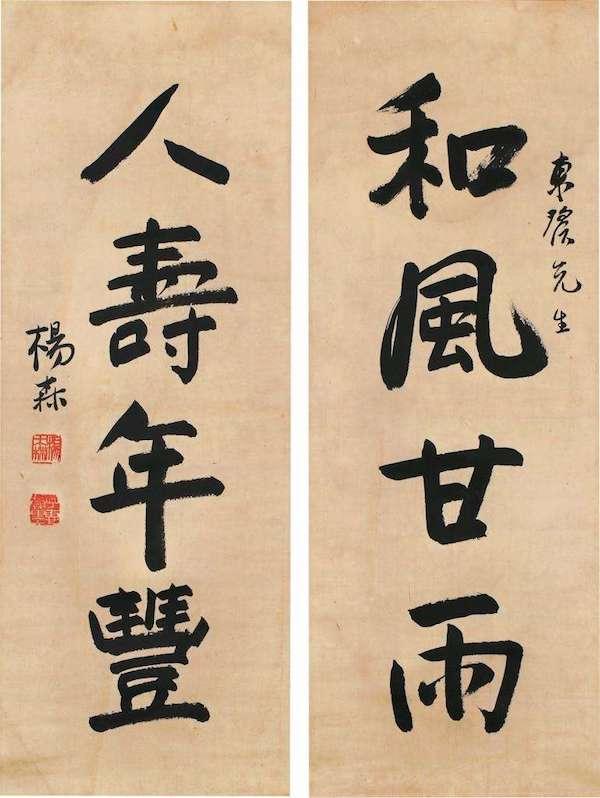 東先生
和風甘雨
人壽年豐
楊森